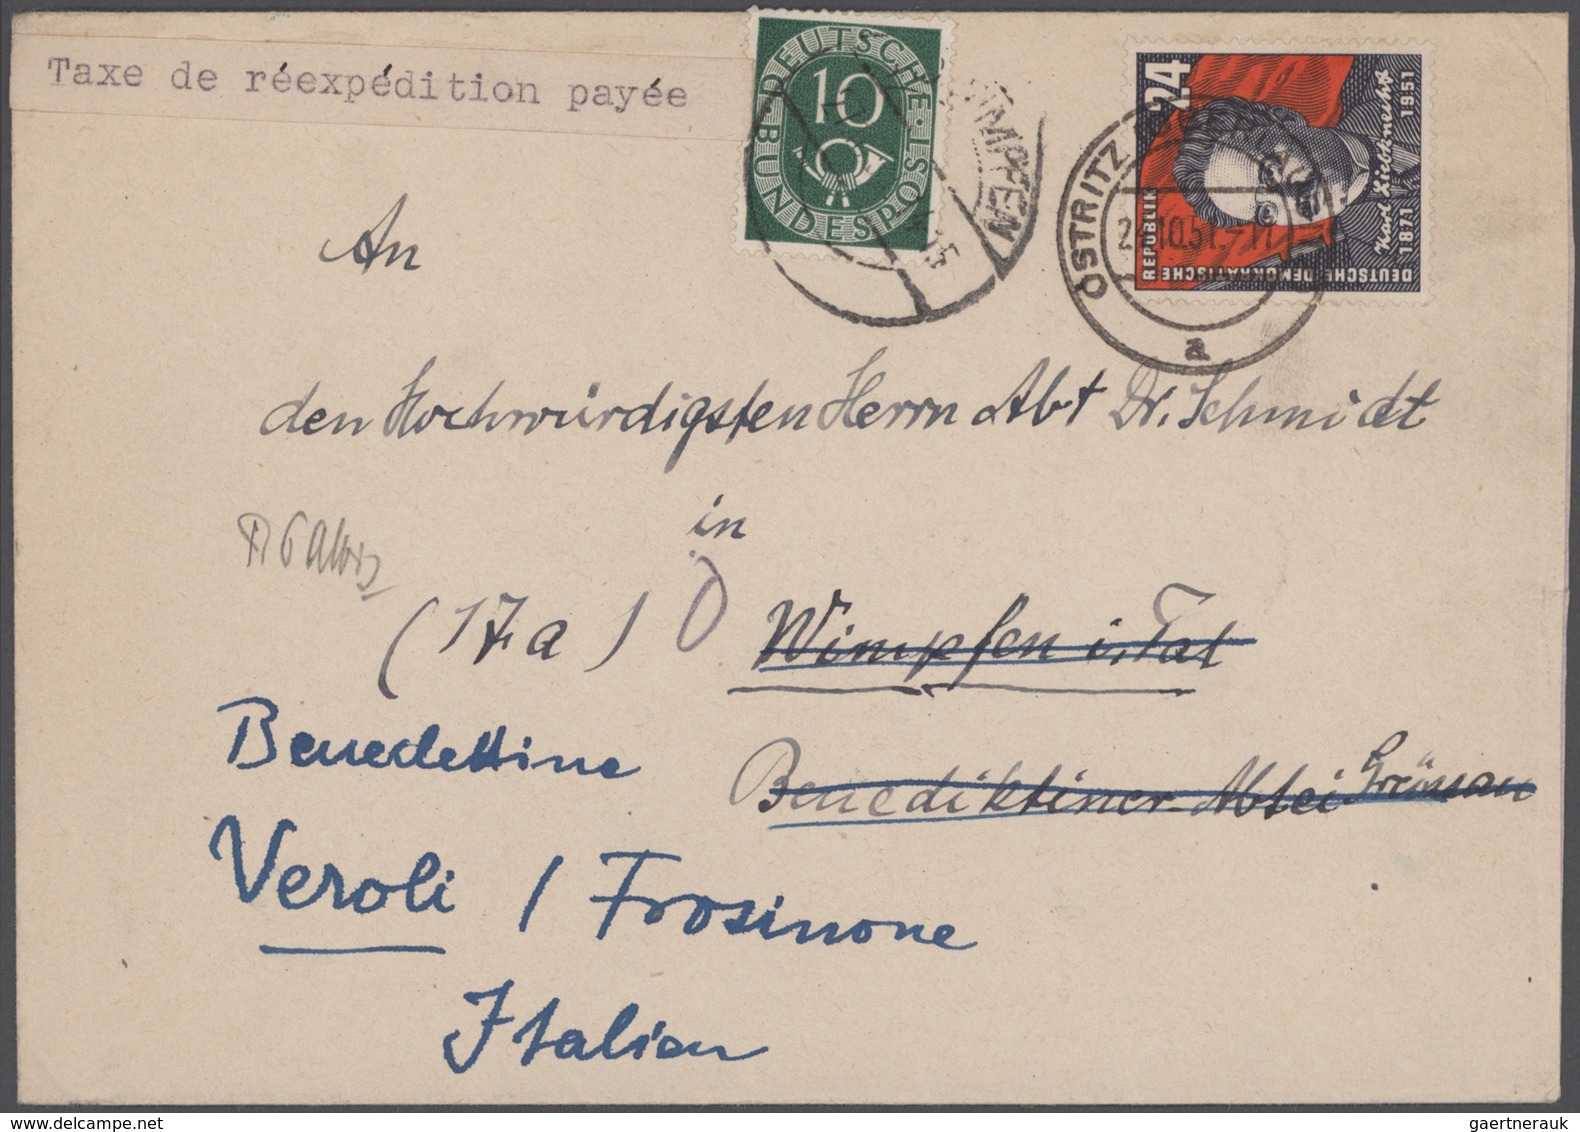 Taxe de réexpédition payée
DEUTSCHE BUNDESPOST
10
WIMPFEN
24
DEUTSCHE DEMOKRATISCHE
REPUBLIK
Karl Liebknecht
1871 1951
OSTRITZ
24.10.51
a
An
den Hochwürdigsten Herrn Abt Dr. Schmidt
in
(17a) Wimpfen i. Tal
Benediktiner-Abtei Grüssau
Benedettine
Veroli / Frosinone
Italien
gaertnerauk@delcampe.net